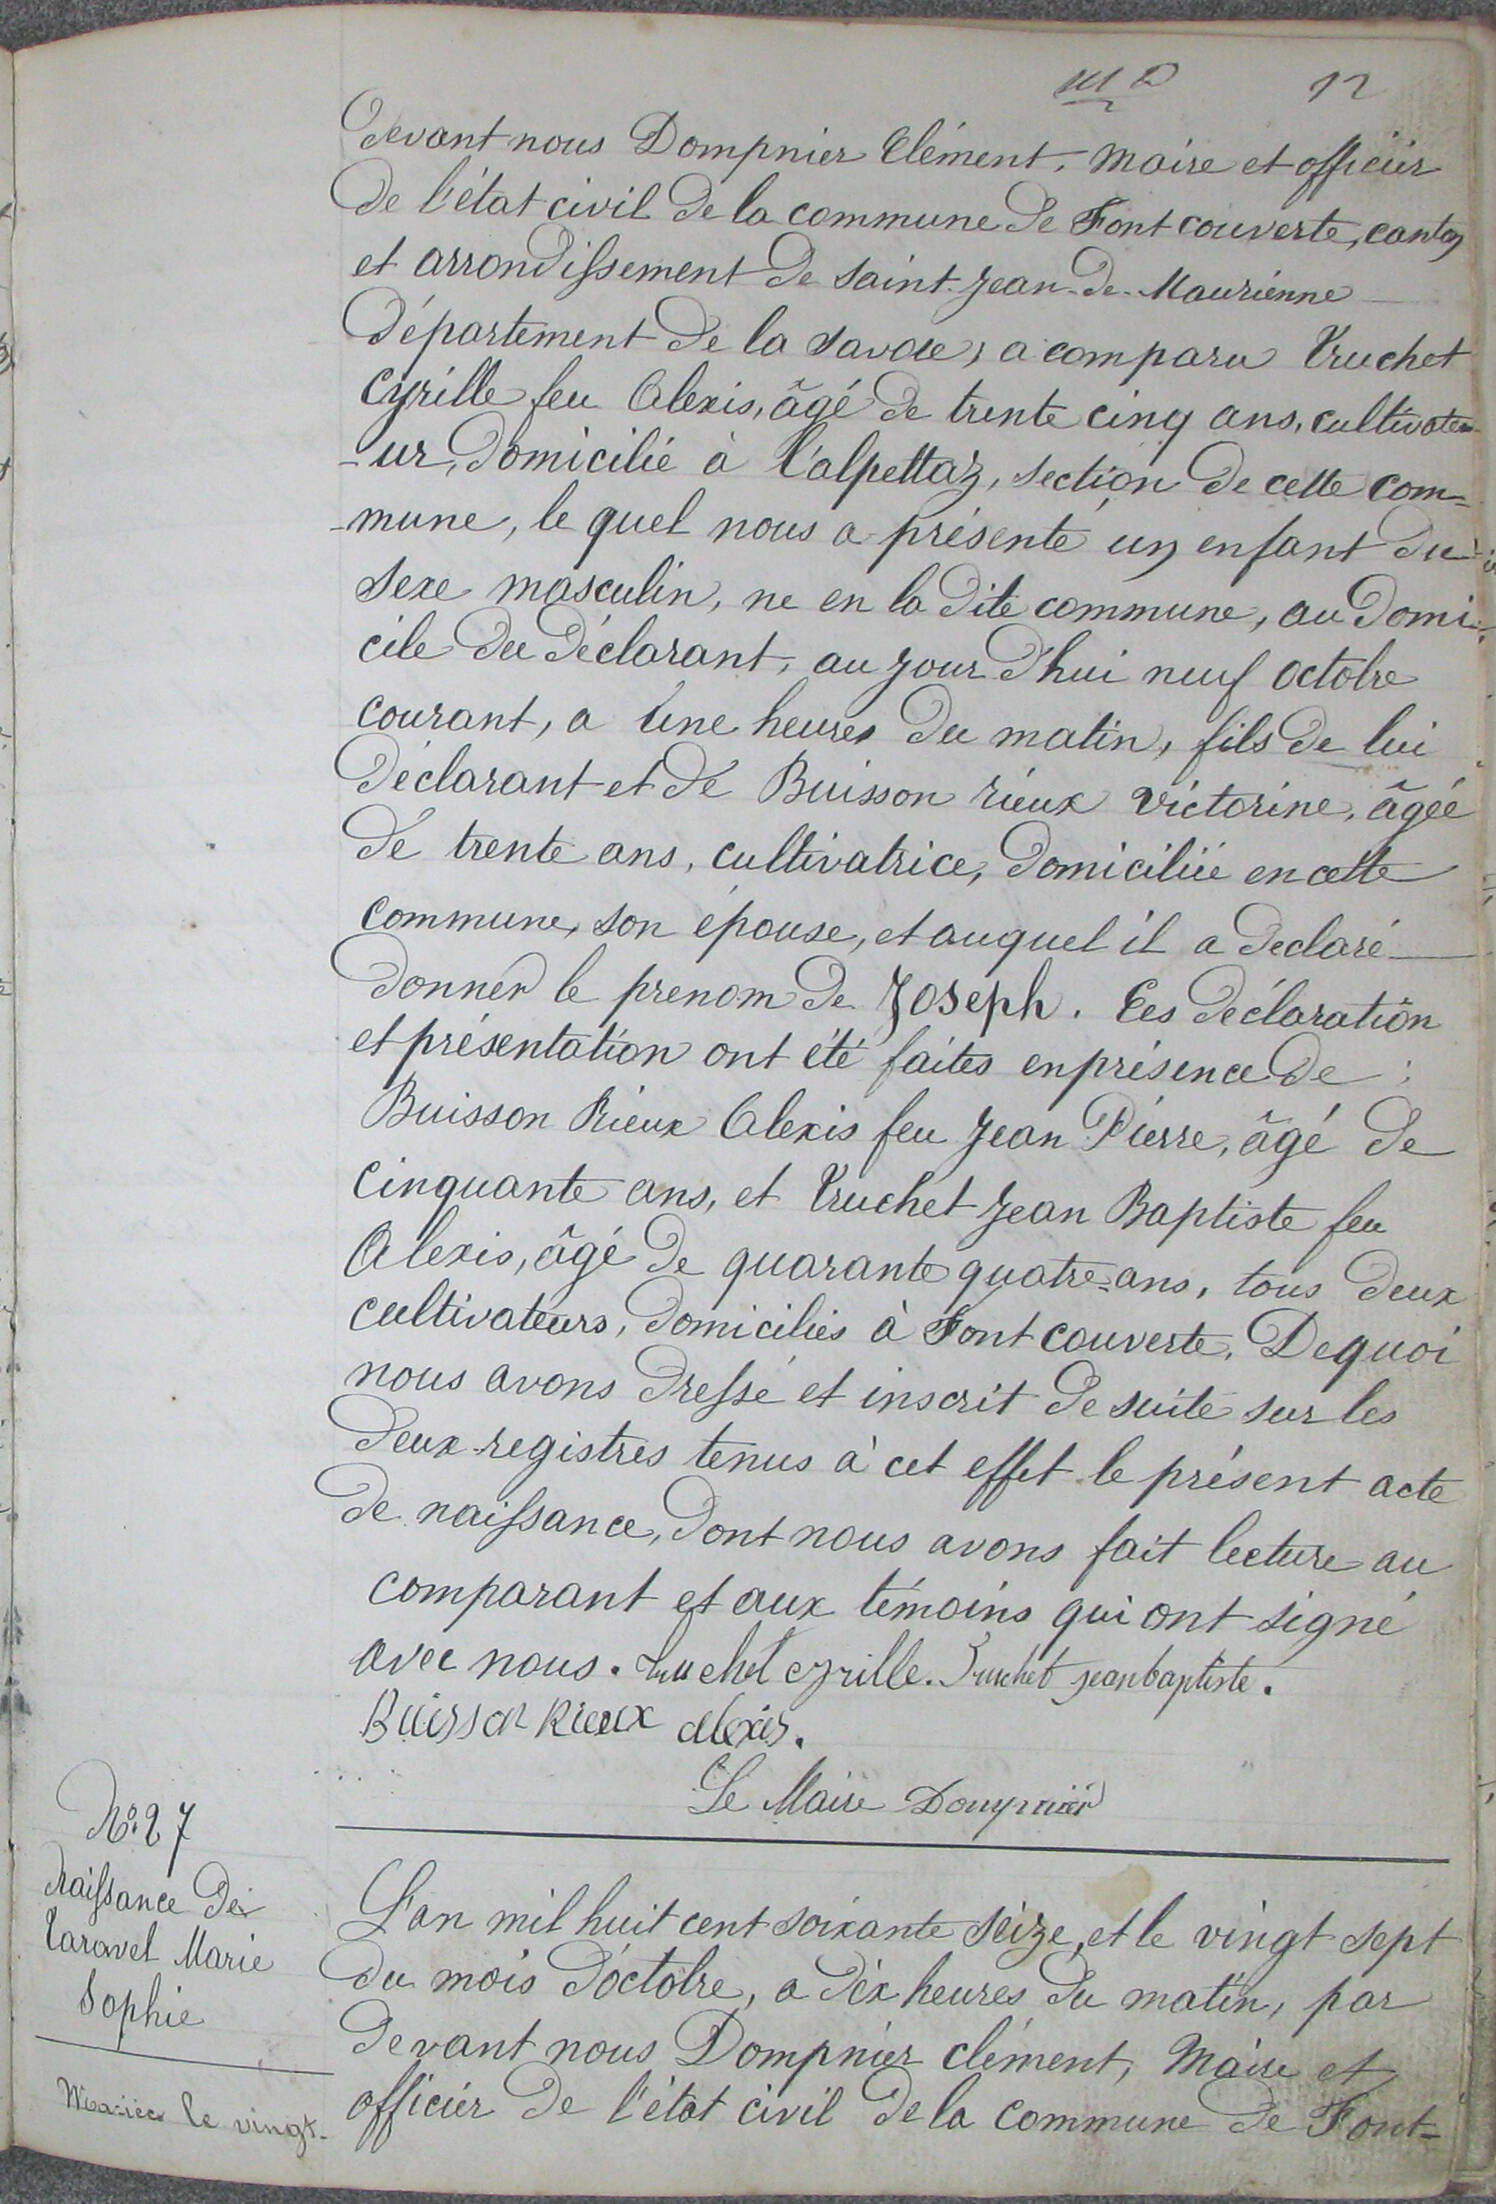 12
devant nous Dompnier Clément, maire et officier
de l'état civil de la commune de Fontcouverte, canton
et arrondissement de Saint-Jean-de-Maurienne
Département de la Savoie, a comparu Truchet
Cyrille feu Alexis, âgé de trente cinq ans, cultivate-
-ur, domicilié à l'alpettaz, section de cette com-
-mune, le quel nous a présenté un enfant du
sexe masculin, ne en la dite commune, au domi-
cile du déclarant, au jour d'hui neuf octobre
courant, a une heures du matin, fils de lui
déclarant et de Buisson rieux victorine, âgée
de trente ans, cultivatrice, domiciliée en cette
commune, son épouse, et auquel il a declaré
donner le prenom de Joseph. Ces déclaration
et présentation ont été faites en présence de :
Buisson Rieux Alexis feu Jean Pierre, âgé de
cinquante ans, et Truchet Jean Baptiste feu
Alexis, âgé de quarante quatre ans, tous deux
cultivateurs, domiciliés à Fontcouverte. De quoi
nous avons dressé et inscrit de suite sur les
deux registres tenus à cet effet le présent acte
de naissance, dont nous avons fait lecture au
comparant et aux témoins qui ont signé
avec nous. Truchet cyrille. Truchet jean baptiste.
Buisson Rieux alexis.
Le Maire Dompnier
N° 27
Naissance de
Taravel Marie
Sophie
Mariée le vingt-
L'an mil huit cent soixante seize, et le vingt sept
du mois d'octobre, a dix heures du matin, par
devant nous Dompnier clément, Maire et
officier de l'état civil de la commune de Font-